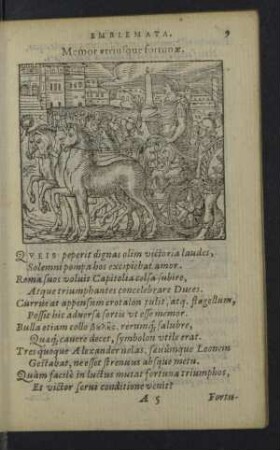 EMBLEMATA. 9
Memor utriusque fortunæ.
QVEIS peperit dignas olim victoria laudes,
Solemni pompa hos excipiebat amor.
Roma suos voluit Capitolia celsa subire,
Atque triumphantes concelebrare Duces.
Currui at appensum crotalon tulit, atq. flagellum,
Possit hic adversæ sortis ut esse memor.
Bulla etiam collo rerumq́; salubre,
Quaq́; cavere docet, symbolon utile erat.
Tres quoque Alexander nolas, Leonem
Gestabat, ne esset strenuus absque metu.
Quàm facilè in luctus mutat fortuna triumphos,
Et victor servi conditione venit?
A 5 Fortu-